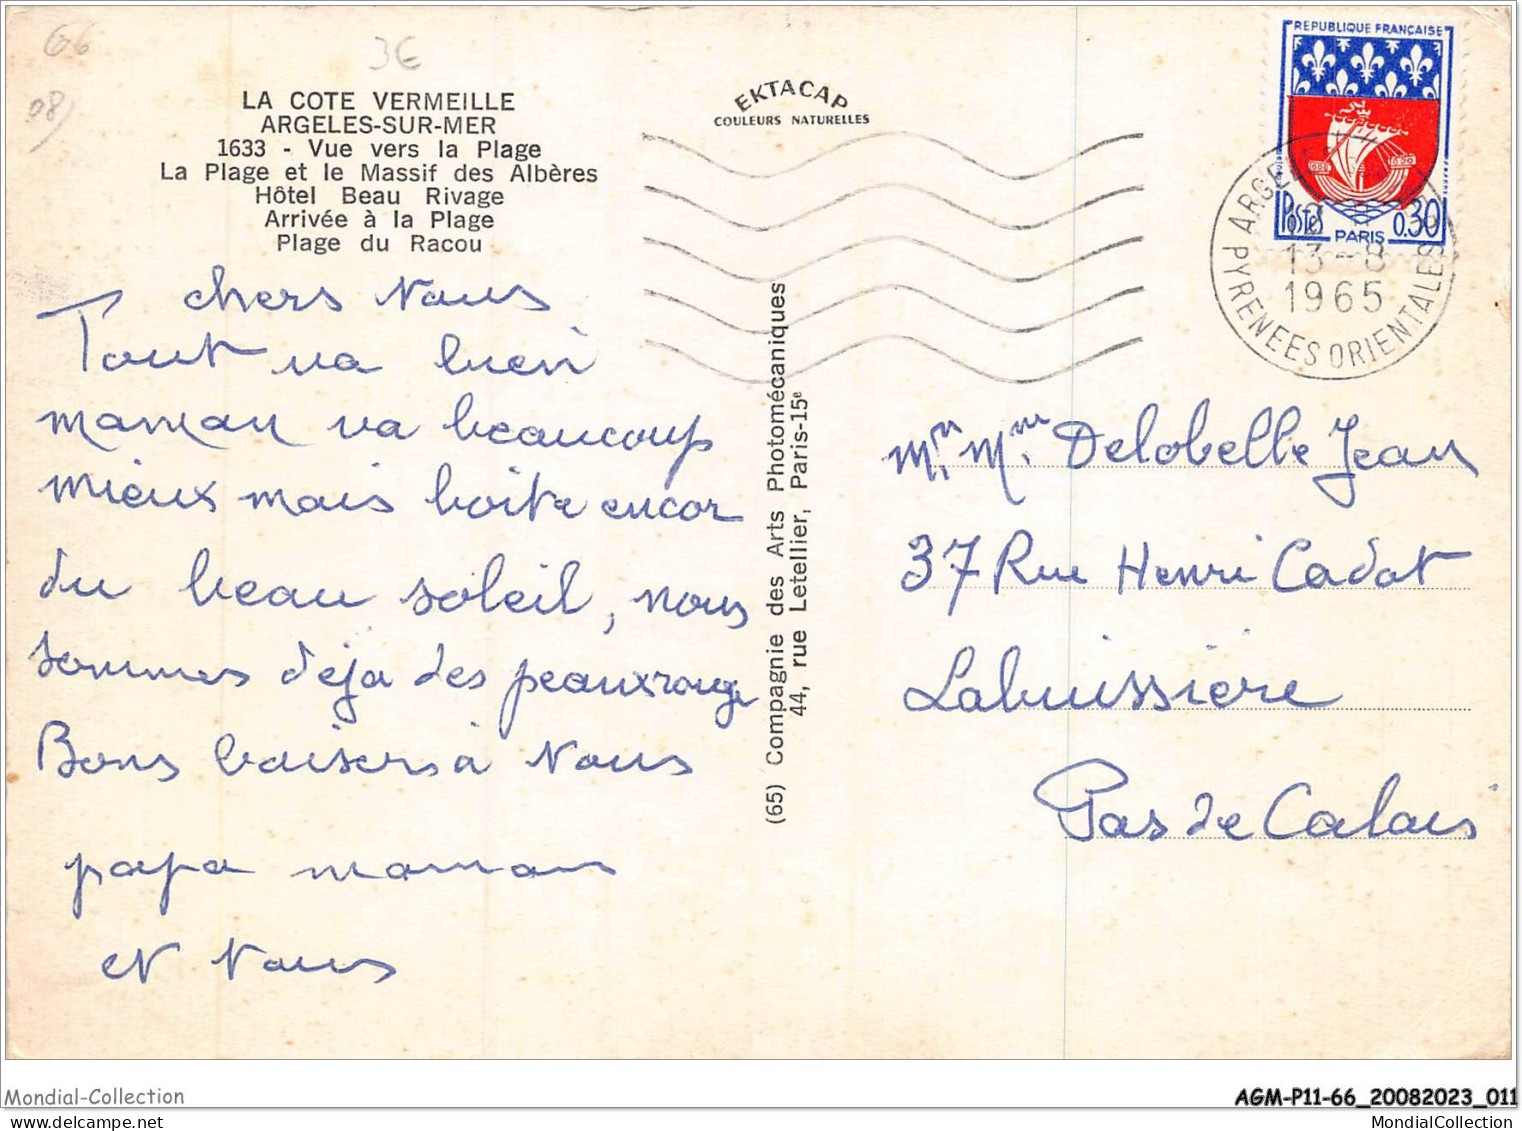 66
3€
08)
LA COTE VERMEILLE
ARGELES-SUR-MER
1633 - Vue vers la Plage
La Plage et le Massif des Albères
Hôtel Beau Rivage
Arrivée à la Plage
Plage du Racou
EKTACAP
COULEURS NATURELLES
REPUBLIQUE FRANÇAISE
Postes
0,30
PARIS
13-8
1965
PYRENEES ORIENTALES
chers Nous
Tout va bien
maman va beaucoup
mieux mais boite encor
du beau soleil, nous
sommes déja des peauxrouge
Bons baisers à Nous
papa maman
et Nous
(65) Compagnie des Arts Photomécaniques
44, rue Letellier, Paris-15e
Mr. Mme. Delobelle Jean
37 Rue Henri Cadot
Labuissière
Pas de Calais
Mondial-Collection
AGM-P11-66_20082023_011
MondialCollection